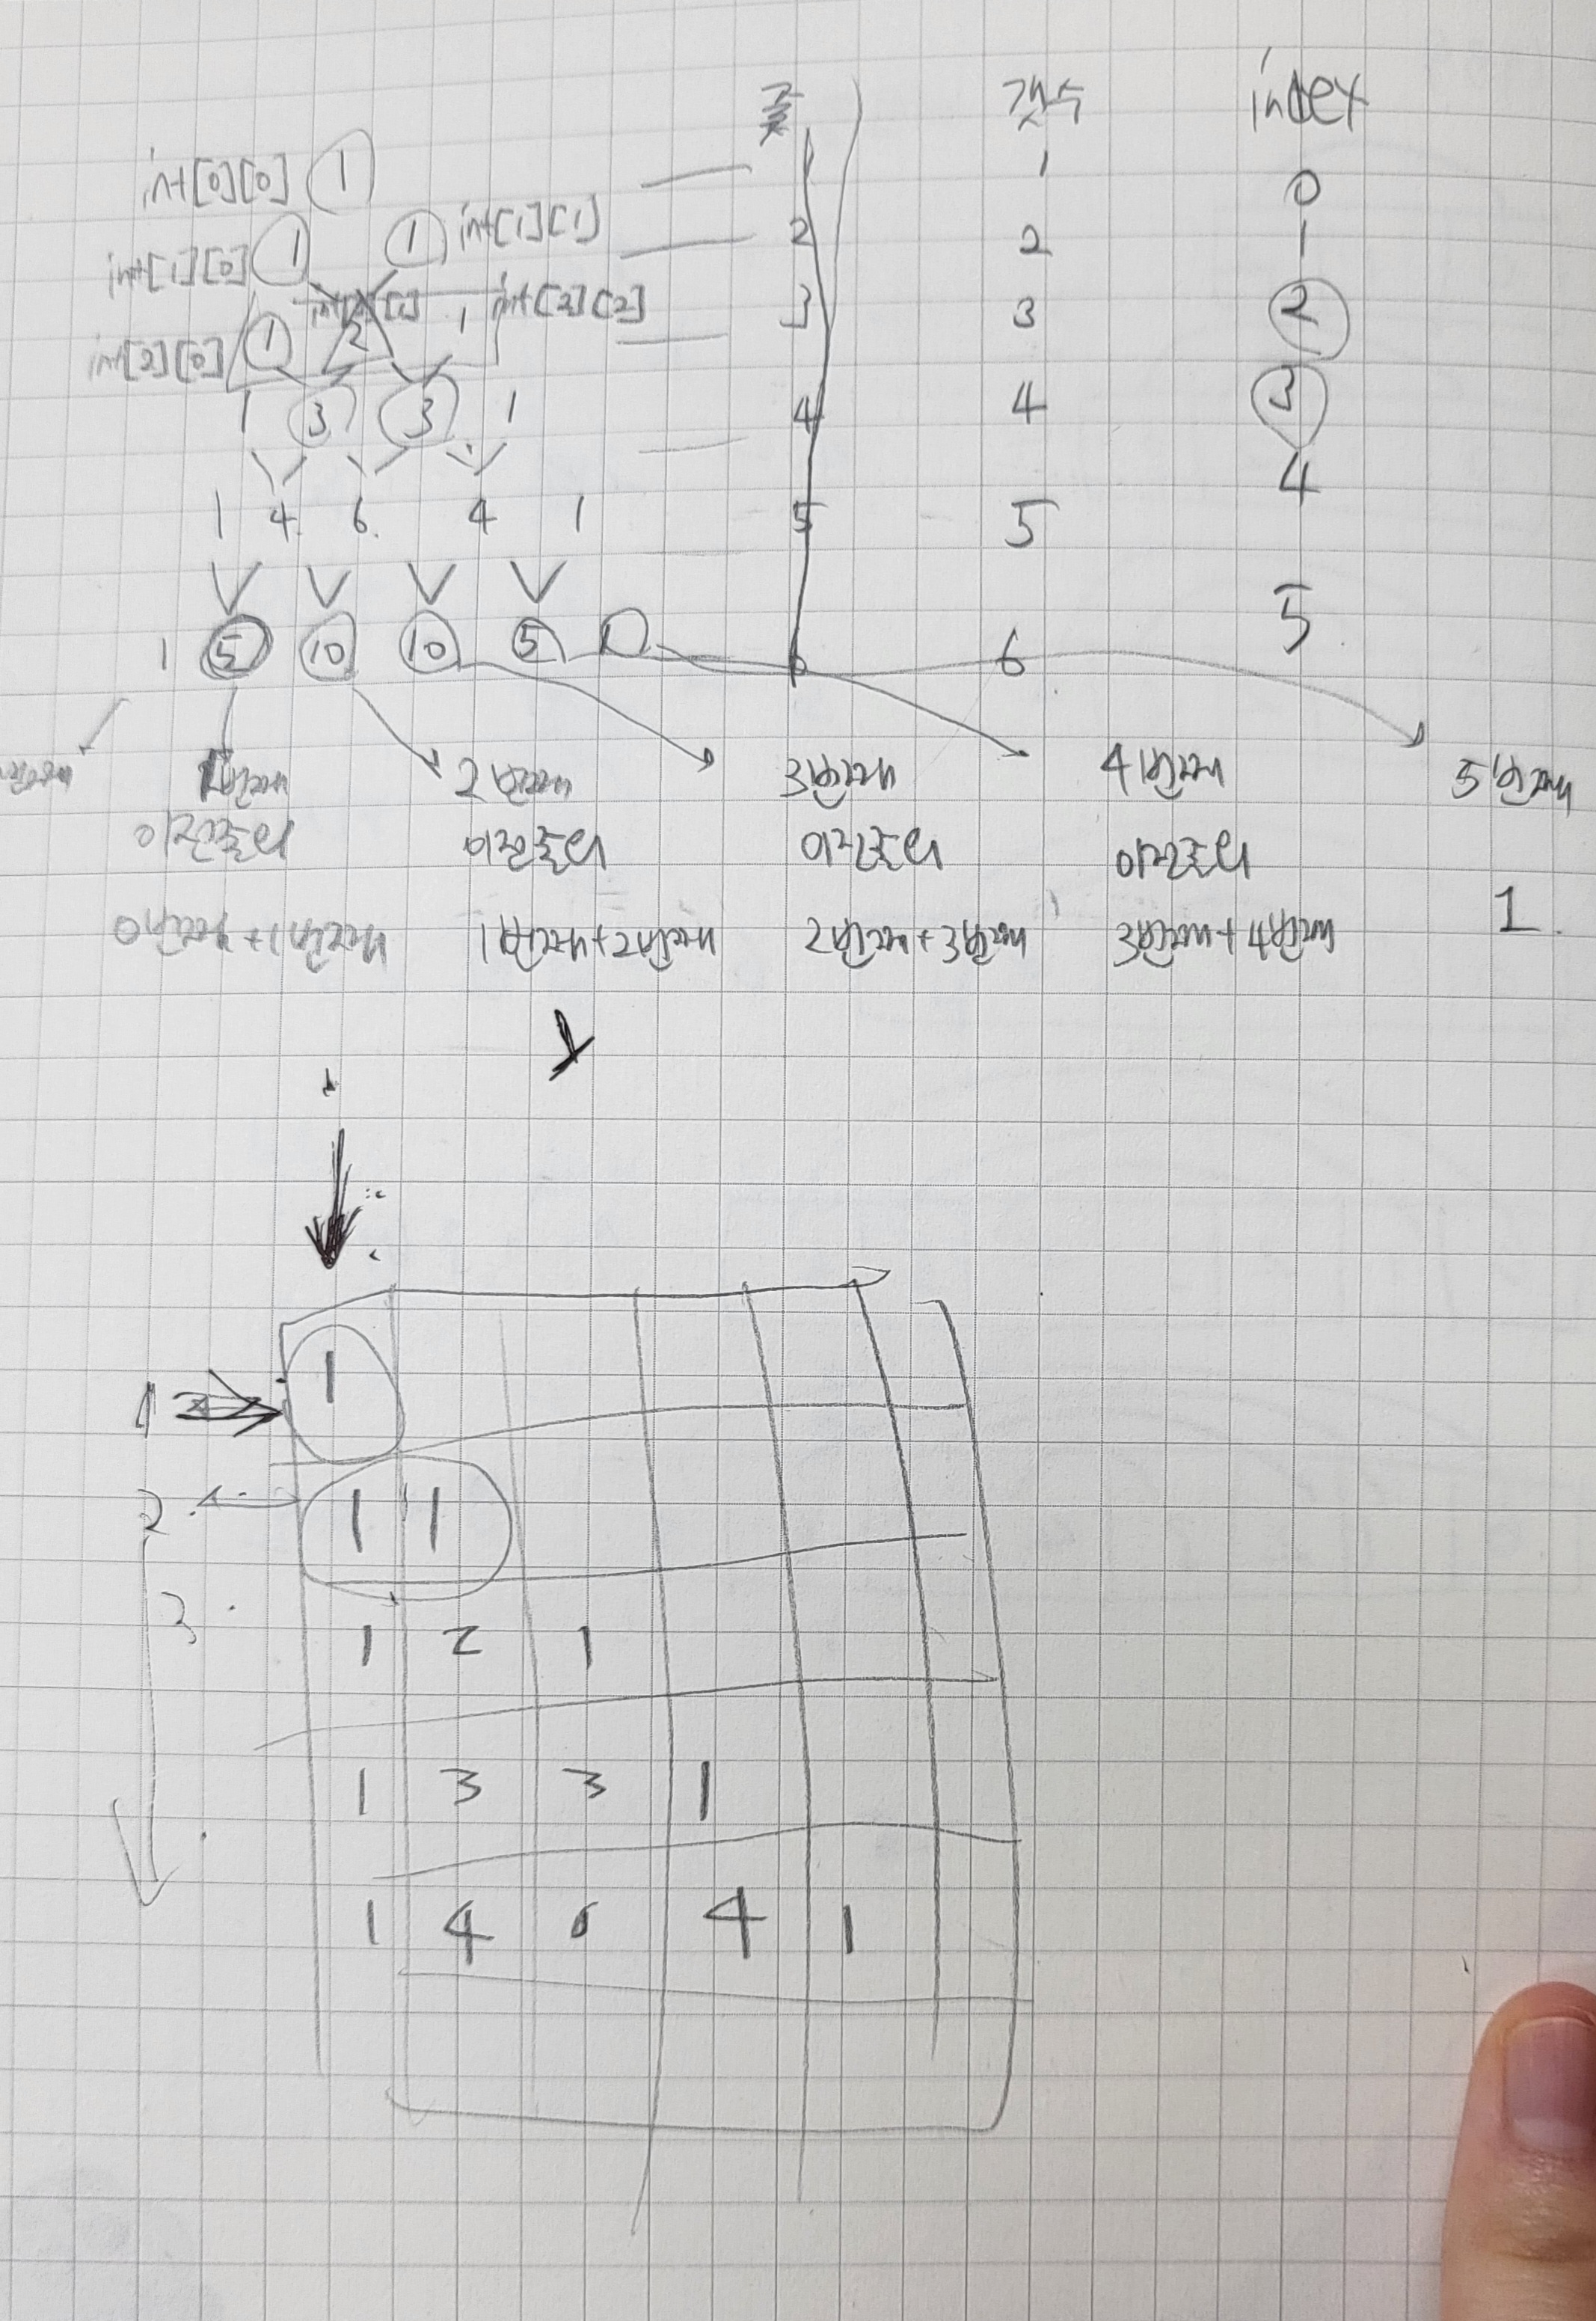 줄 갯수 index
int[0][0] 1 1 1 0
int[1][0] 1 1 int[1][1] 2 2 1
int[2][0] 1 2 1 int[2][2] 3 3 2
1 3 3 1 4 4 3
1 4 6 4 1 5 5 4
1 5 10 10 5 1 6 6 5
1번째 2번째 3번째 4번째 5번째
이전줄의 이전줄의 이전줄의 이전줄의
0번째+1번째 1번째+2번째 2번째+3번째 3번째+4번째 1
1 1
2 1 1
3 1 2 1
1 3 3 1
1 4 6 4 1